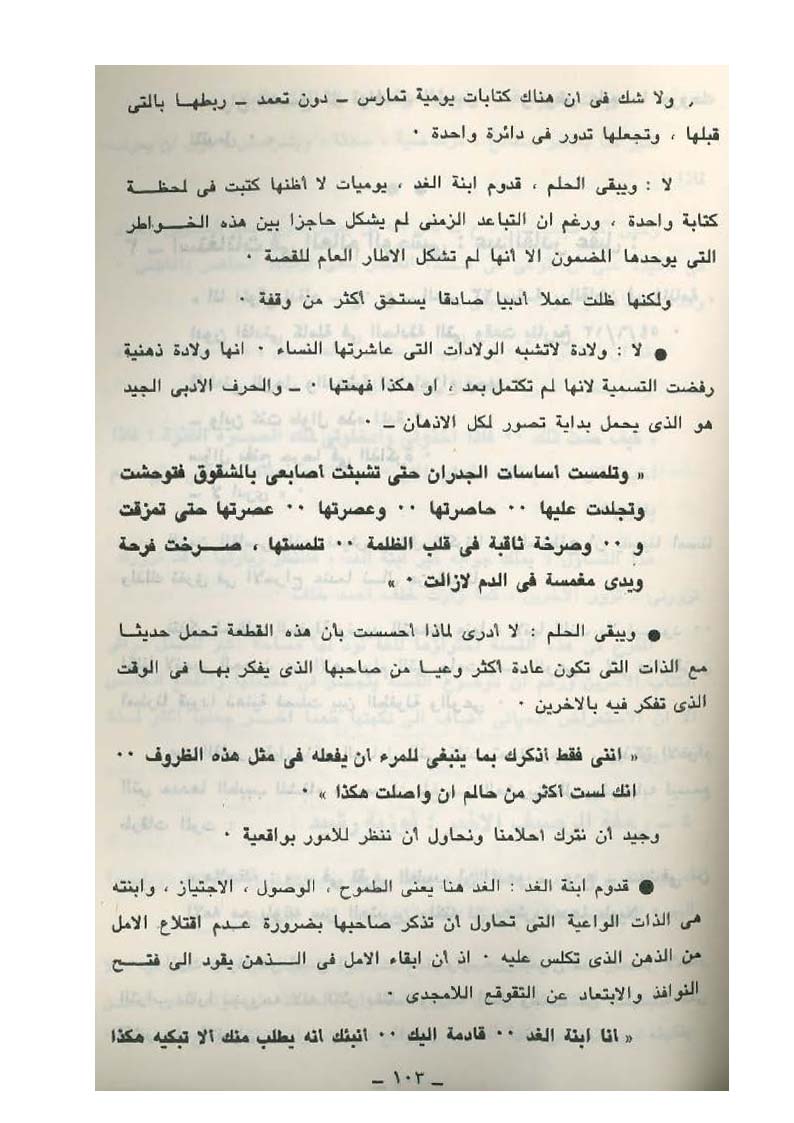 ولا شك فى ان هناك كتابات يومية تمارس ــ دون تعمد ــ ربطها بالتى
قبلها ، وتجعلها تدور فى دائرة واحدة ٠
لا : ويبقى الحلم ، قدوم ابنة الغد ، يوميات لا أظنها كتبت فى لحظة
كتابة واحدة ، ورغم ان التباعد الزمنى لم يشكل حاجزا بين هذه الخواطر
التى يوحدها المضمون الا أنها لم تشكل الاطار العام للقصة ٠
ولكنها ظلت عملا أدبيا صادقا يستحق أكثر من وقفة ٠
● لا : ولادة لاتشبه الولادات التى عاشرتها النساء ٠ انها ولادة ذهنية
رفضت التسمية لانها لم تكتمل بعد ، او هكذا فهمتها ٠ ــ والحرف الادبى الجيد
هو الذى يحمل بداية تصور لكل الاذهان ــ ٠
« وتلمست اساسات الجدران حتى تشبثت أصابعى بالشقوق فتوحشت
وتجلدت عليها ٠٠ حاصرتها ٠٠ وعصرتها ٠٠ عصرتها حتى تمزقت
و ٠٠ وصرخة ثاقبة فى قلب الظلمة ٠٠ تلمستها ، صرخت فرحة
ويدى مغمسة فى الدم لازالت ٠ »
● ويبقى الحلم : لا أدرى لماذا أحسست بأن هذه القطعة تحمل حديثا
مع الذات التى تكون عادة أكثر وعيا من صاحبها الذى يفكر بها فى الوقت
الذى تفكر فيه بالاخرين ٠
« اننى فقط أذكرك بما ينبغى للمرء ان يفعله فى مثل هذه الظروف ٠٠
انك لست أكثر من حالم ان واصلت هكذا » ٠
وجيد أن نترك احلامنا ونحاول أن ننظر للامور بواقعية ٠
● قدوم ابنة الغد : الغد هنا يعنى الطموح ، الوصول ، الاجتياز ، وابنته
هى الذات الواعية التى تحاول ان تذكر صاحبها بضرورة عدم اقتلاع الامل
من الذهن الذى تكلس عليه ٠ اذ أن ابقاء الامل فى الذهن يقود الى فتح
النوافذ والابتعاد عن التقوقع اللامجدى ٠
« انا ابنة الغد ٠٠ قادمة اليك ٠٠ أنبئك انه يطلب منك ألا تبكيه هكذا
ــ ١٠٣ ــ